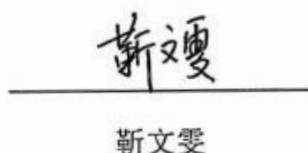 靳文雯
靳文雯